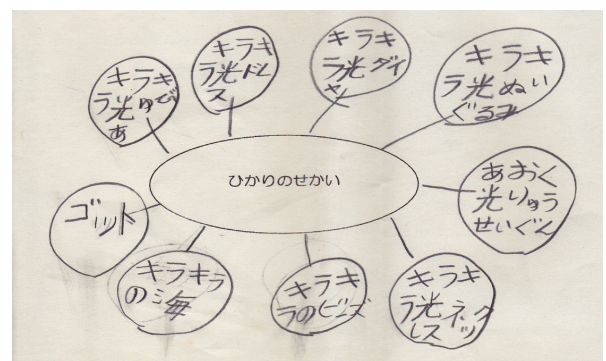 ひかりのせかい
キラキ
ラ光ゆび
あ
キラキ
ラ光ドレ
ス
キラキ
ラ光ダイ
ヤ
キラキ
ラ光ぬい
ぐるみ
あおく
光りゅう
せいぐん
キラキ
ラ光ネック
レス
キラキ
ラのビーズ
キラキラ
の海
ゴット